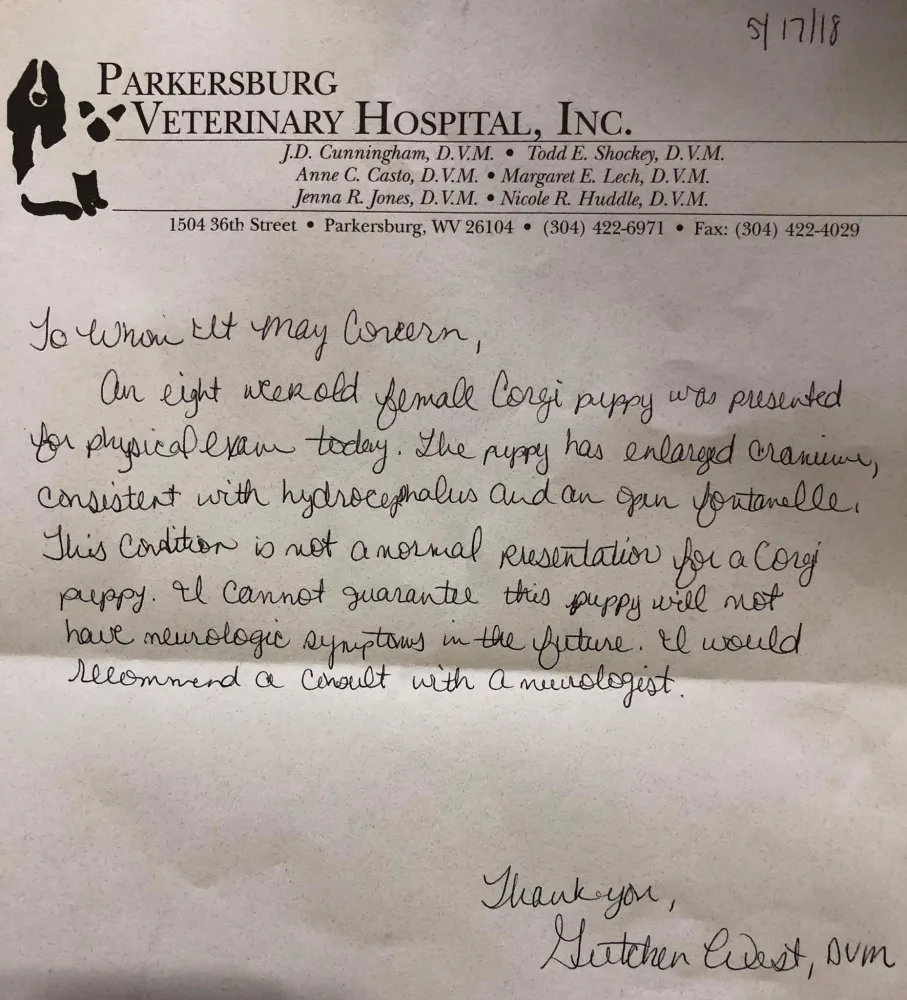 5/17/18
PARKERSBURG
VETERINARY HOSPITAL, INC.
J.D. Cunningham, D.V.M. • Todd E. Shockey, D.V.M.
Anne C. Casto, D.V.M. • Margaret E. Lech, D.V.M.
Jenna R. Jones, D.V.M. • Nicole R. Huddle, D.V.M.
1504 36th Street • Parkersburg, WV 26104 • (304) 422-6971 • Fax: (304) 422-4029
To Whom It May Concern,
An eight week old female Corgi puppy was presented
for physical exam today. The puppy has enlarged cranium,
consistent with hydrocephalus and an open fontanelle.
This condition is not a normal presentation for a Corgi
puppy. I cannot guarantee this puppy will not
have neurologic symptoms in the future. I would
recommend a consult with a neurologist.
Thank you,
Gretchen West, DVM